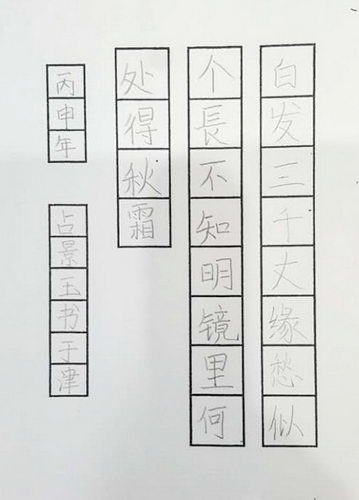 白发三千丈缘愁似
个長不知明镜里何
处得秋霜
丙申年
占景玉书于津